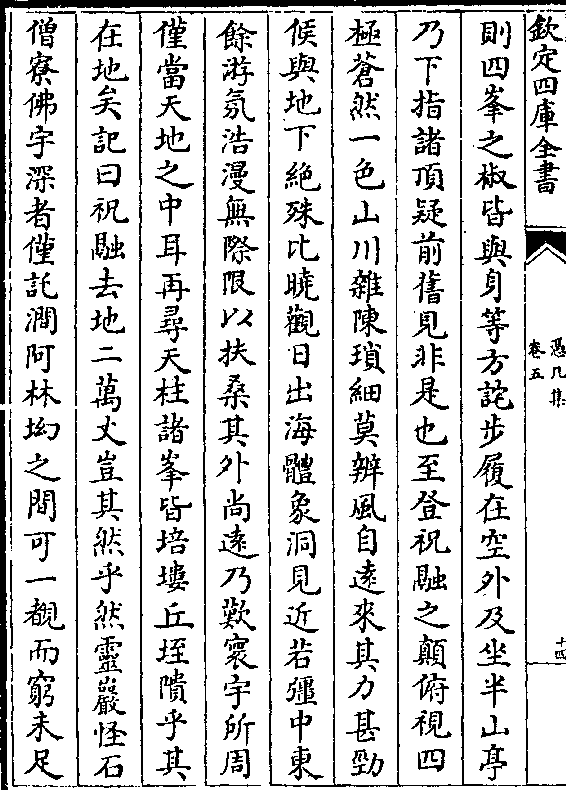 欽定四庫全書
憑几集
卷五
十四
則四峯之椒皆與身等方詫步履在空外及坐半山亭
乃下指諸頂疑前舊見非是也至登祝融之顛俯視四
極蒼然一色山川雜陳瑣細莫辨風自遠來其力甚勁
候與地下絶殊比曉觀日出海體象洞見近若彊中東
餘游氛浩漫無際限以扶桑其外尚遠乃歎寰宇所周
僅當天地之中耳再尋天柱諸峯皆培塿丘垤隤乎其
在地矣記曰祝融去地二萬丈豈其然乎然靈巖怪石
僧寮佛宇深者僅託澗阿林坳之間可一覩而窮未足